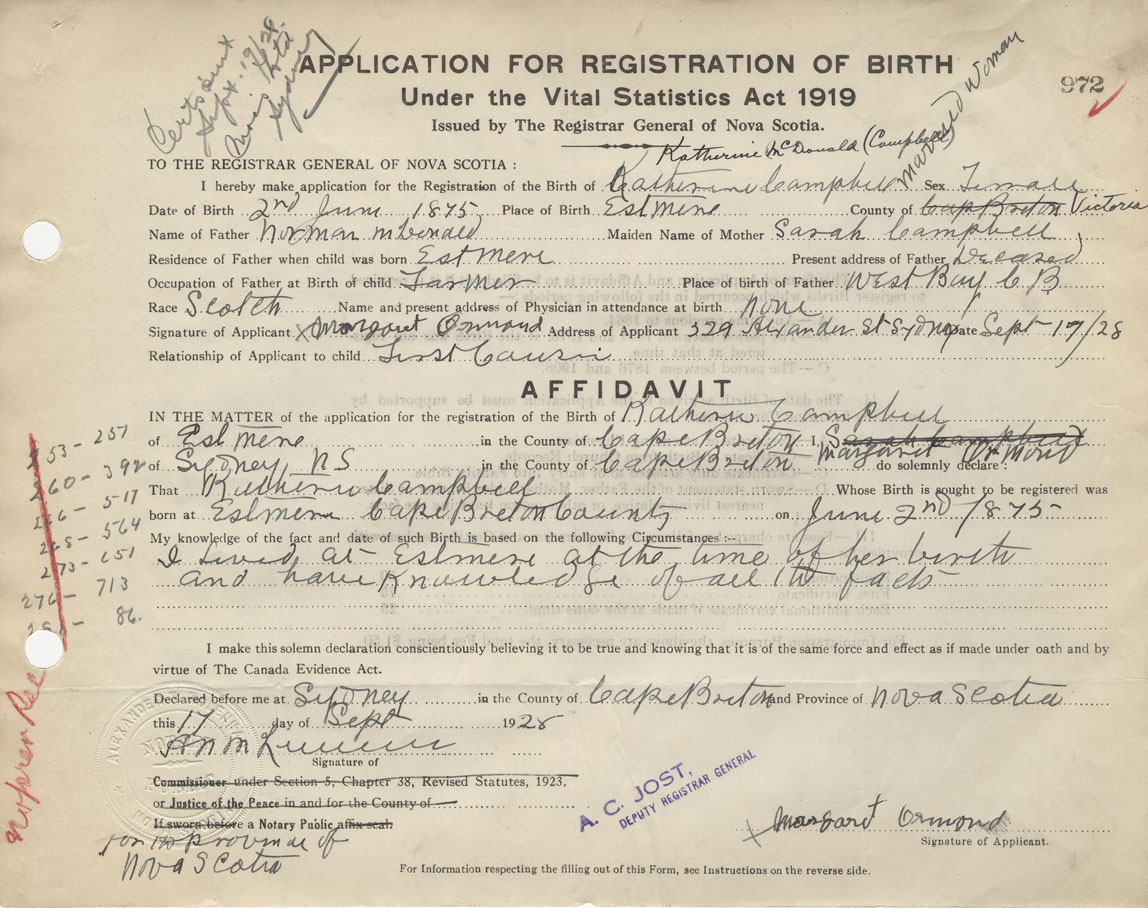 Cert sent
Sept. 19/28
Sydney
APPLICATION FOR REGISTRATION OF BIRTH
Under the Vital Statistics Act 1919
Issued by The Registrar General of Nova Scotia.
972
Married Woman
Katherine McDonald (Campbell)
TO THE REGISTRAR GENERAL OF NOVA SCOTIA :
I hereby make application for the Registration of the Birth of Katherine Campbell Sex Female
Date of Birth 2nd June 1875 Place of Birth Estmere County of Cape Breton Victoria
Name of Father Norman McDonald Maiden Name of Mother Sarah Campbell
Residence of Father when child was born Estmere Present address of Father Deceased
Occupation of Father at Birth of child Farmer Place of birth of Father West Bay C B
Race Scotch Name and present address of Physician in attendance at birth None
Signature of Applicant X Margaret Ormond Address of Applicant 329 Alexander St Sydney Date Sept 17/28
Relationship of Applicant to child First Cousin
AFFIDAVIT
IN THE MATTER of the application for the registration of the Birth of Katherine Campbell
of Estmere in the County of Cape Breton I, Sarah Campbell
Margaret Ormond
of Sydney NS in the County of Cape Breton do solemnly declare :
That Katherine Campbell Whose Birth is sought to be registered was
born at Estmere Cape Breton County on June 2nd 1875
My knowledge of the fact and date of such Birth is based on the following Circumstances :-
I lived at Estmere at the time of her birth
and have knowledge of all the facts
53 - 251
260 - 392
266 - 517
268 - 564
273 - 651
276 - 713
86.
I make this solemn declaration conscientiously believing it to be true and knowing that it is of the same force and effect as if made under oath and by
virtue of The Canada Evidence Act.
Declared before me at Sydney in the County of Cape Breton and Province of Nova Scotia
this 17 day of Sept 1928
Signature of
Commissioner under Section 5, Chapter 38, Revised Statutes, 1923,
or Justice of the Peace in and for the County of
If sworn before a Notary Public affix seal.
for the province of
Nova Scotia
A. C. JOST,
DEPUTY REGISTRAR GENERAL
X Margaret Ormond
Signature of Applicant.
For Information respecting the filling out of this Form, see Instructions on the reverse side.